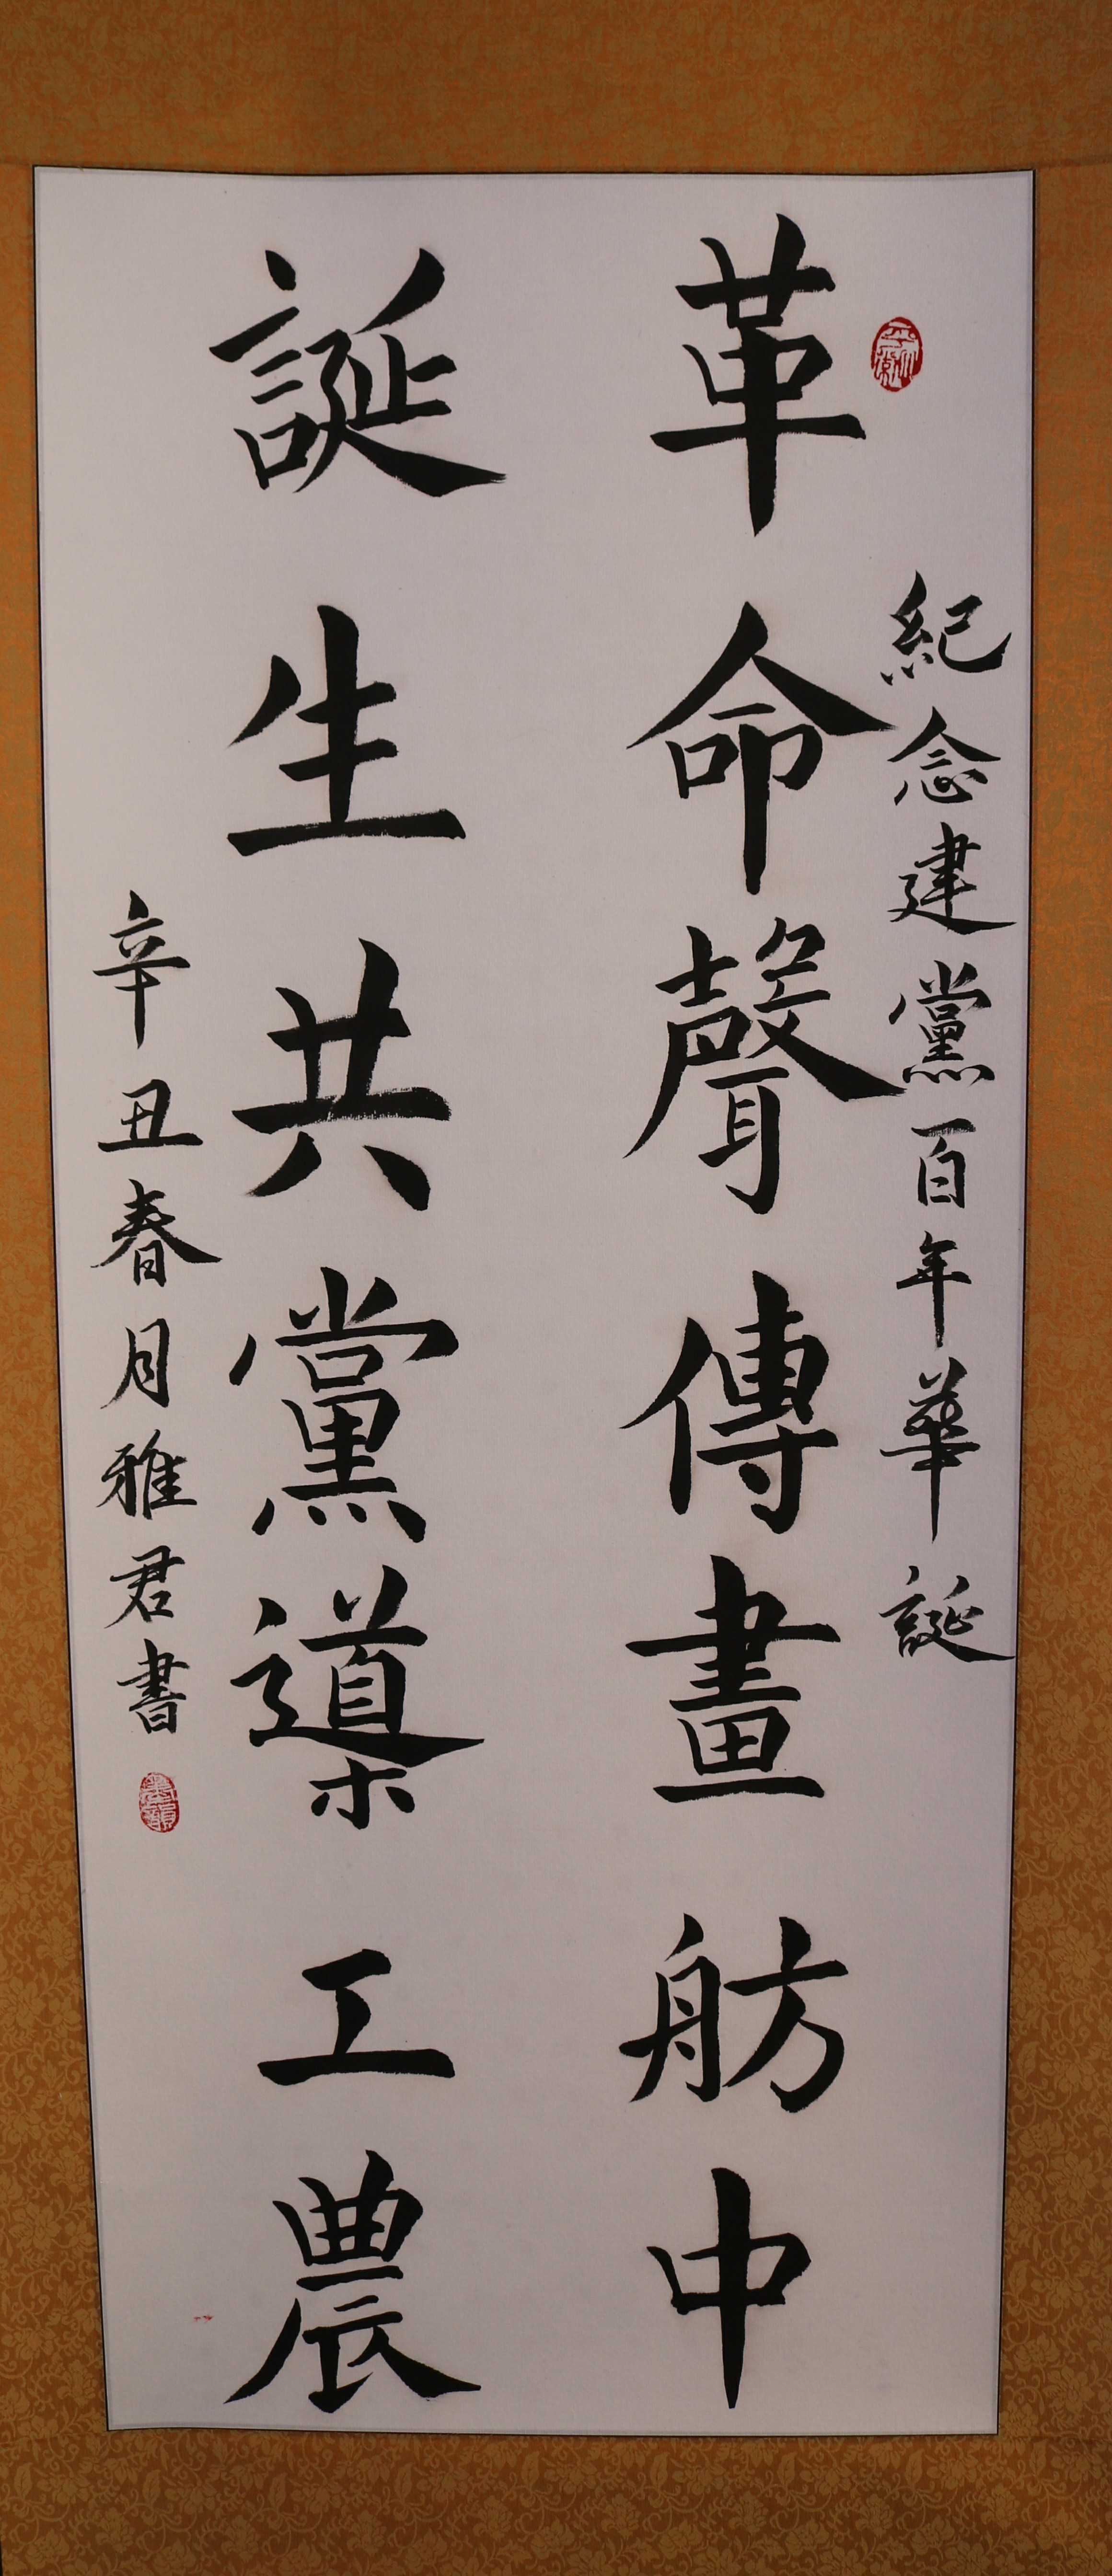 紀念建黨百年華誕
革命聲傳畫舫中
誕生共黨導工農
辛丑春月雅君書